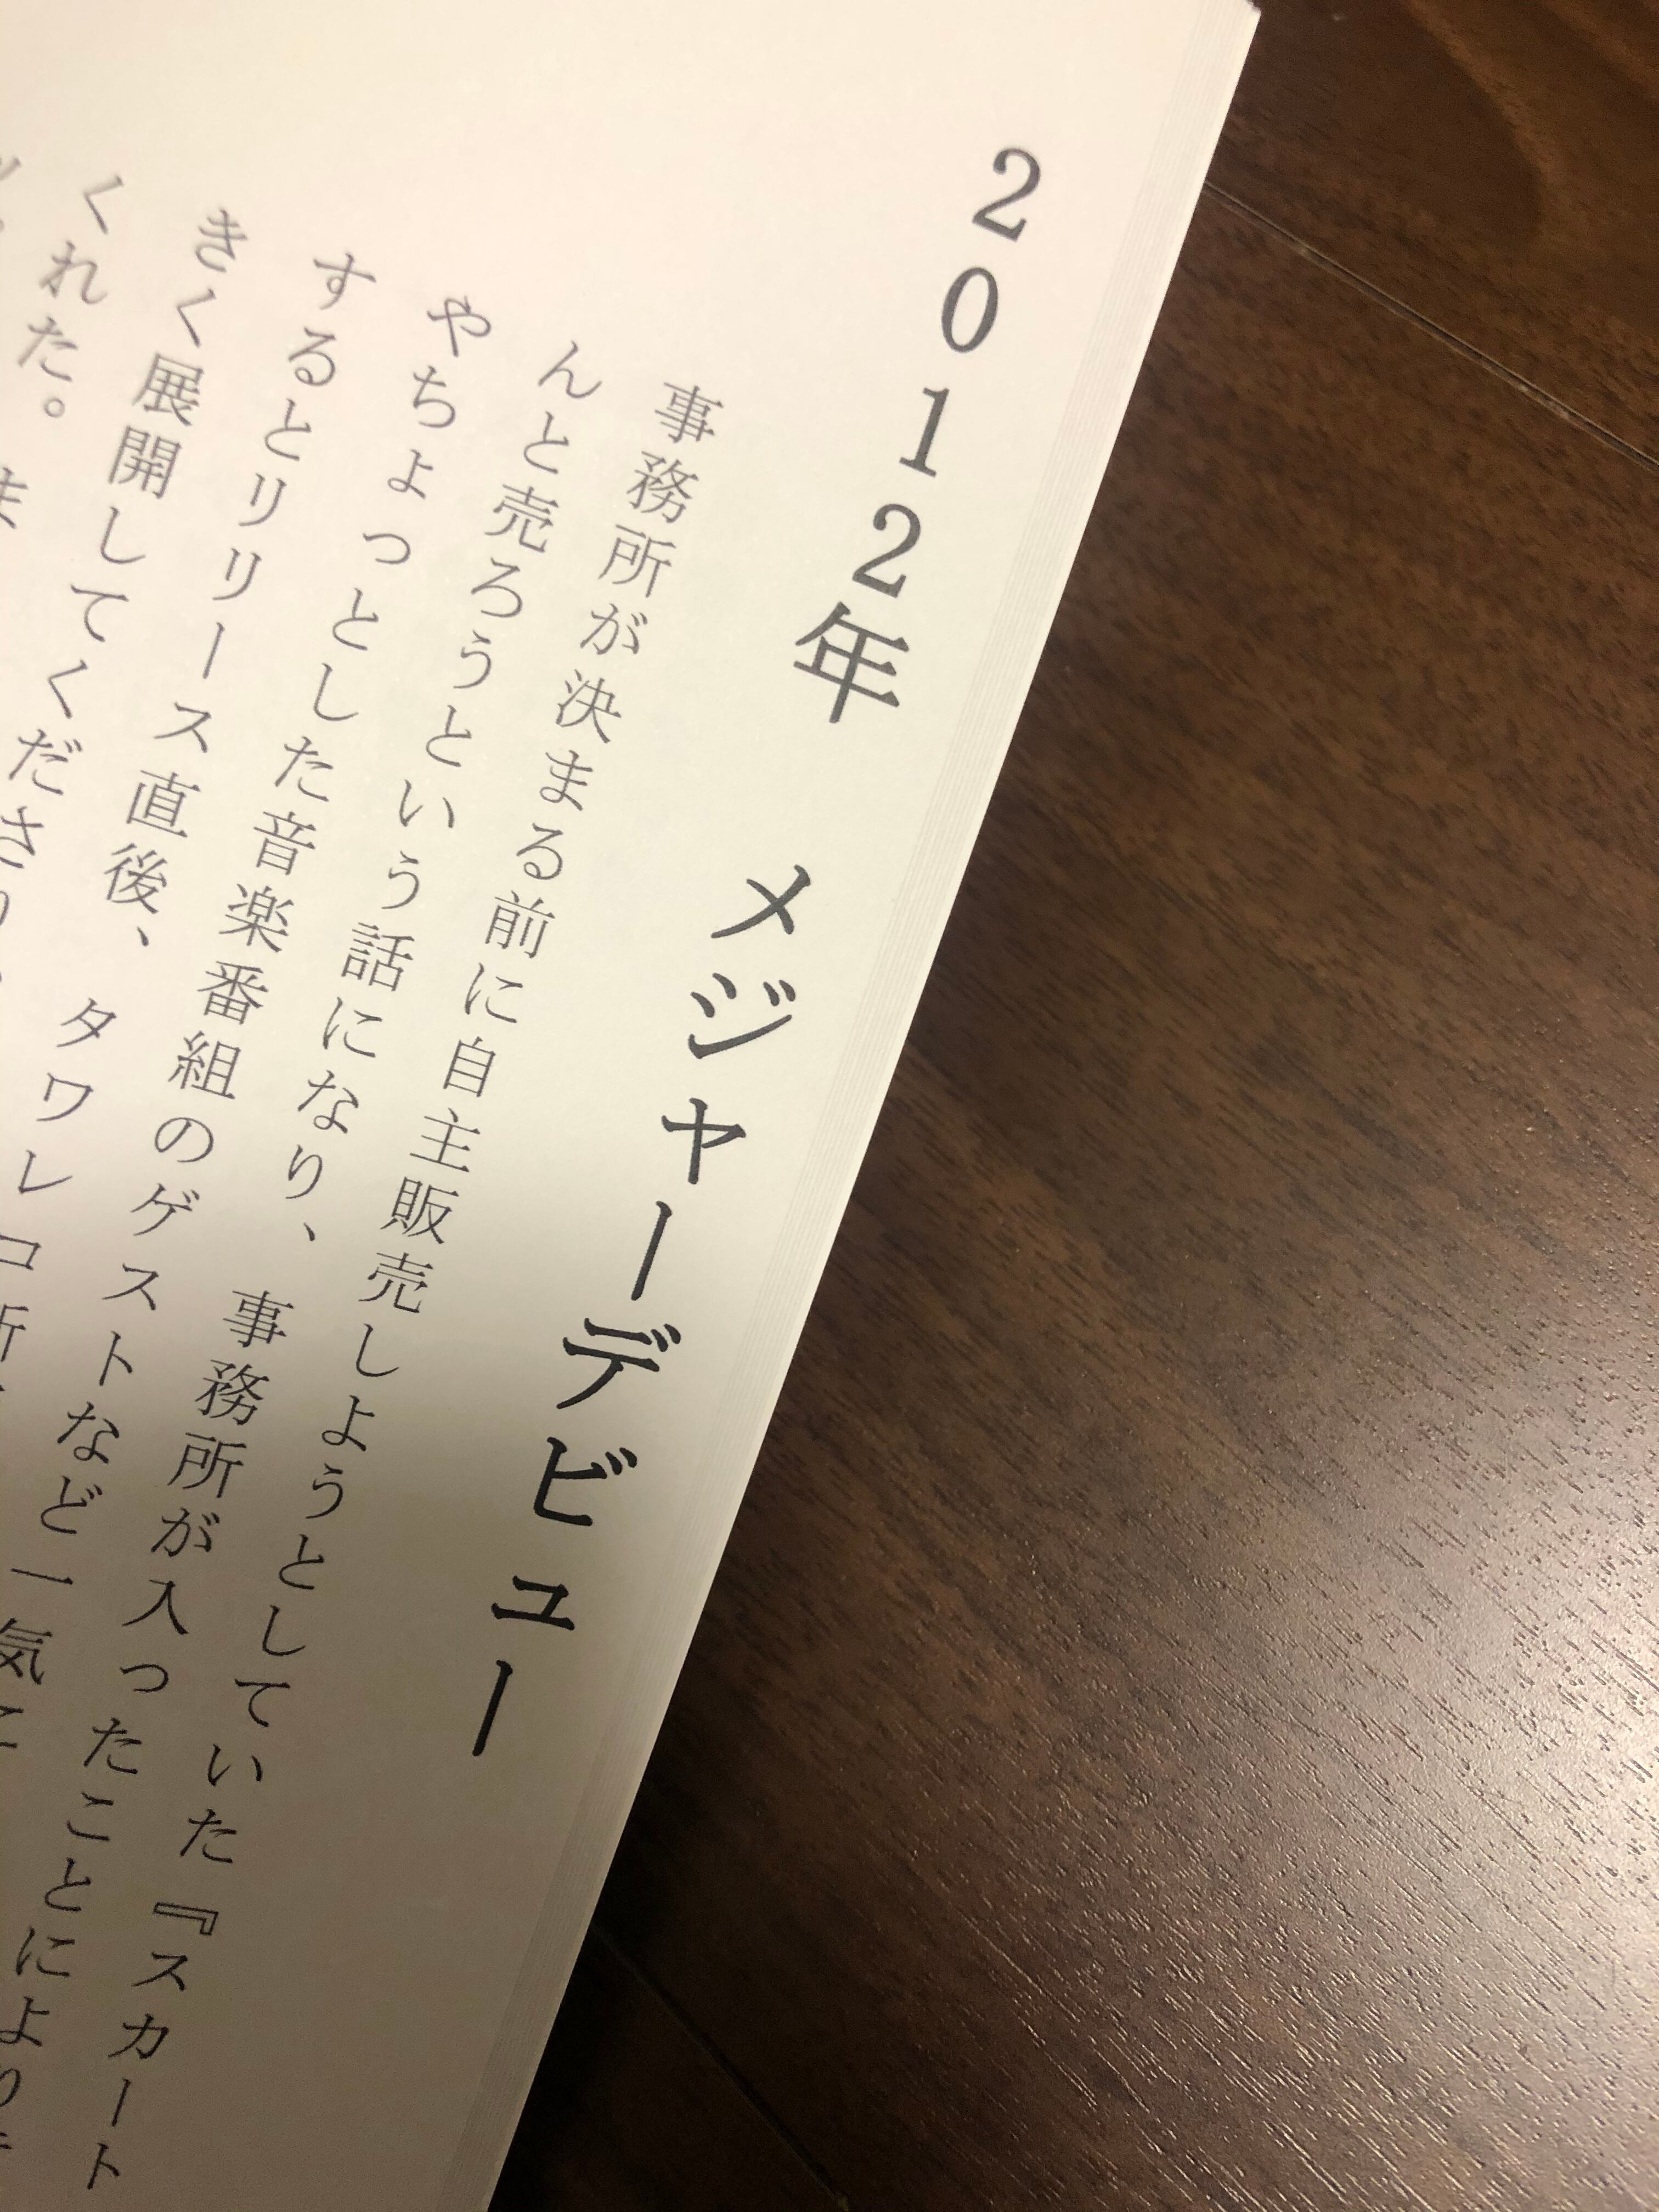 2012年　メジャーデビュー
事務所が決まる前に自主販売しようとしていた『スカート
んと売ろうという話になり、事務所が入ったことにより
やちょっとした音楽番組のゲストなど一気に
するとリリース直後、タワレコ
きく展開してくださり、
くれた。ま